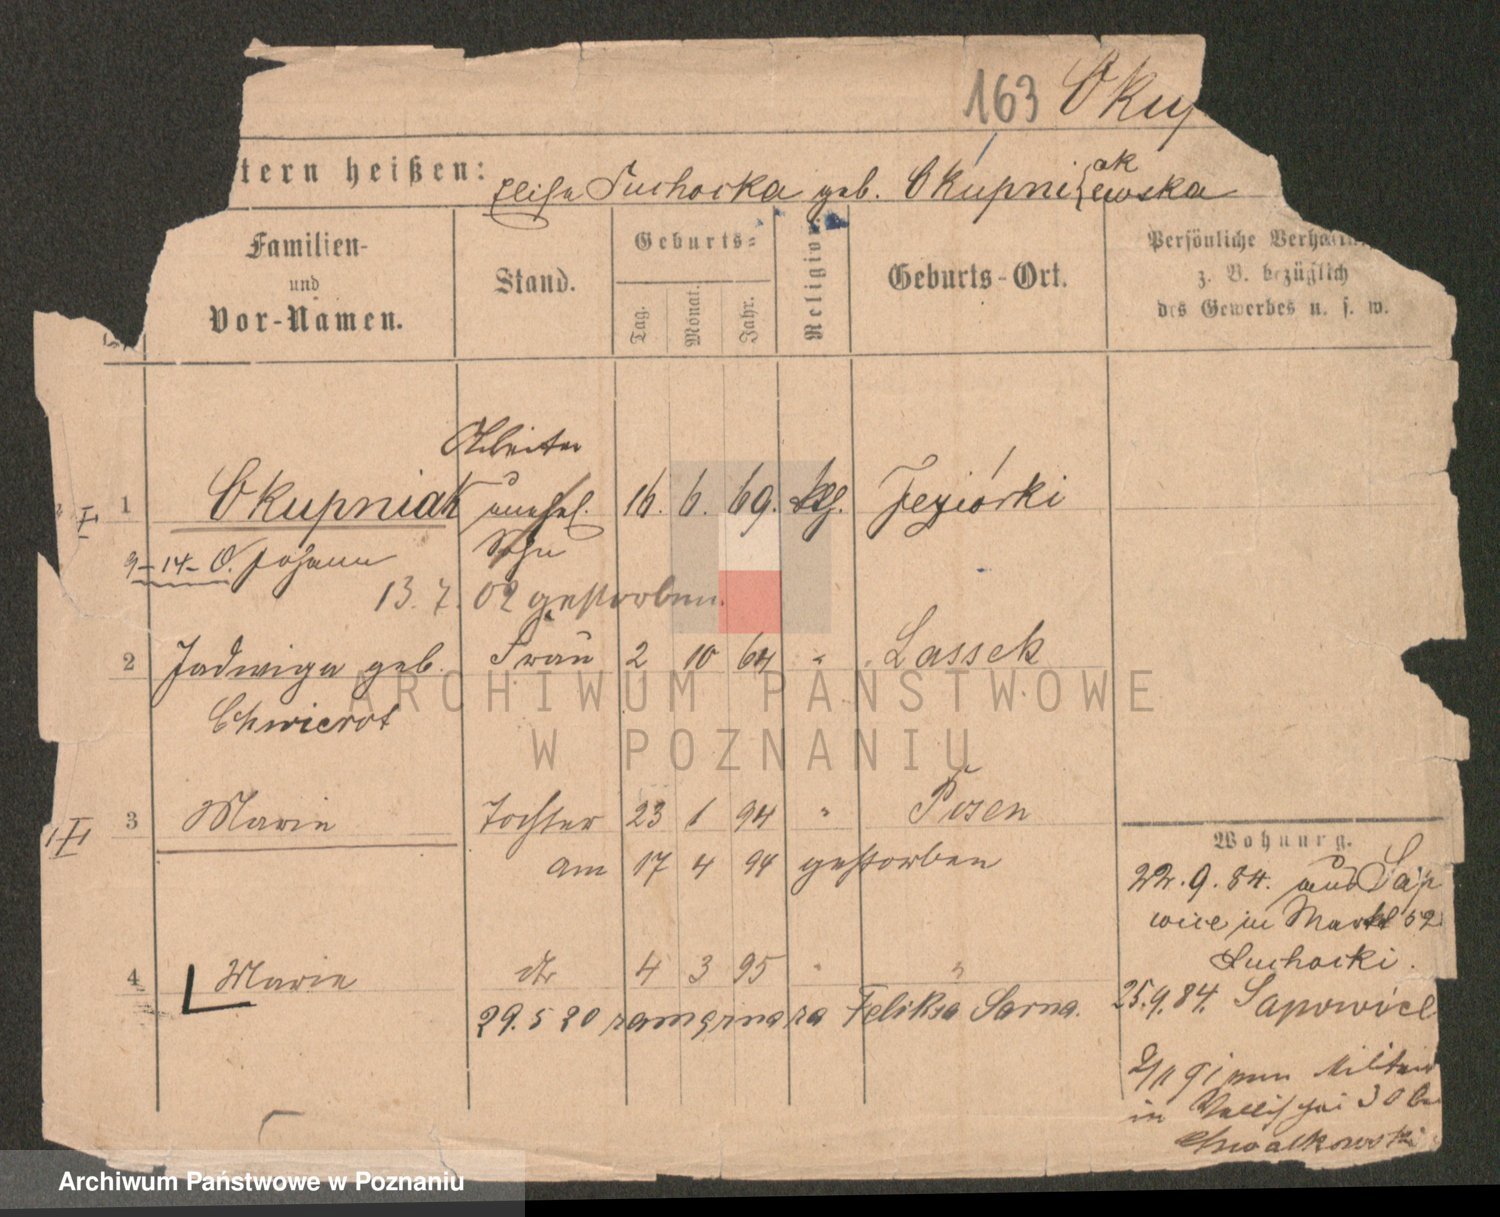 163 Okup
tern heißen: Elise Suchocka geb. Okupni{ak
ewska
Familien-
und
Vor-Namen.
Stand.
Geburts-
Tag. Monat. Jahr.
Religion.
Geburts-Ort.
Persönliche Verhältni
z. B. bezüglich
des Gewerbes u. s. w.
Arbeiter
1 Okupniak unehel. 16. 6. 69. ktf. Jeziórki
9-14- O. Johann Sohn
13. 7. 02 gestorben.
2 Jadwiga geb. Frau 2 10 64 " Lassek
Chwierot
3 Marie Tochter 23 1 94 " Posen
am 17 4 94 gestorben
4 Marie dtr 4 3 95 " "
29. 5 20 zamężna za Feliksa Sarna.
Wohnung.
22. 9. 84. aus Sap
wice in Markt 52
Suchocki.
25. 9. 84. Sapowice
2/11 91 zum Militair
in Wallischei 30 be
Chwalkowski
ARCHIWUM PAŃSTWOWE
W POZNANIU
Archiwum Państwowe w Poznaniu